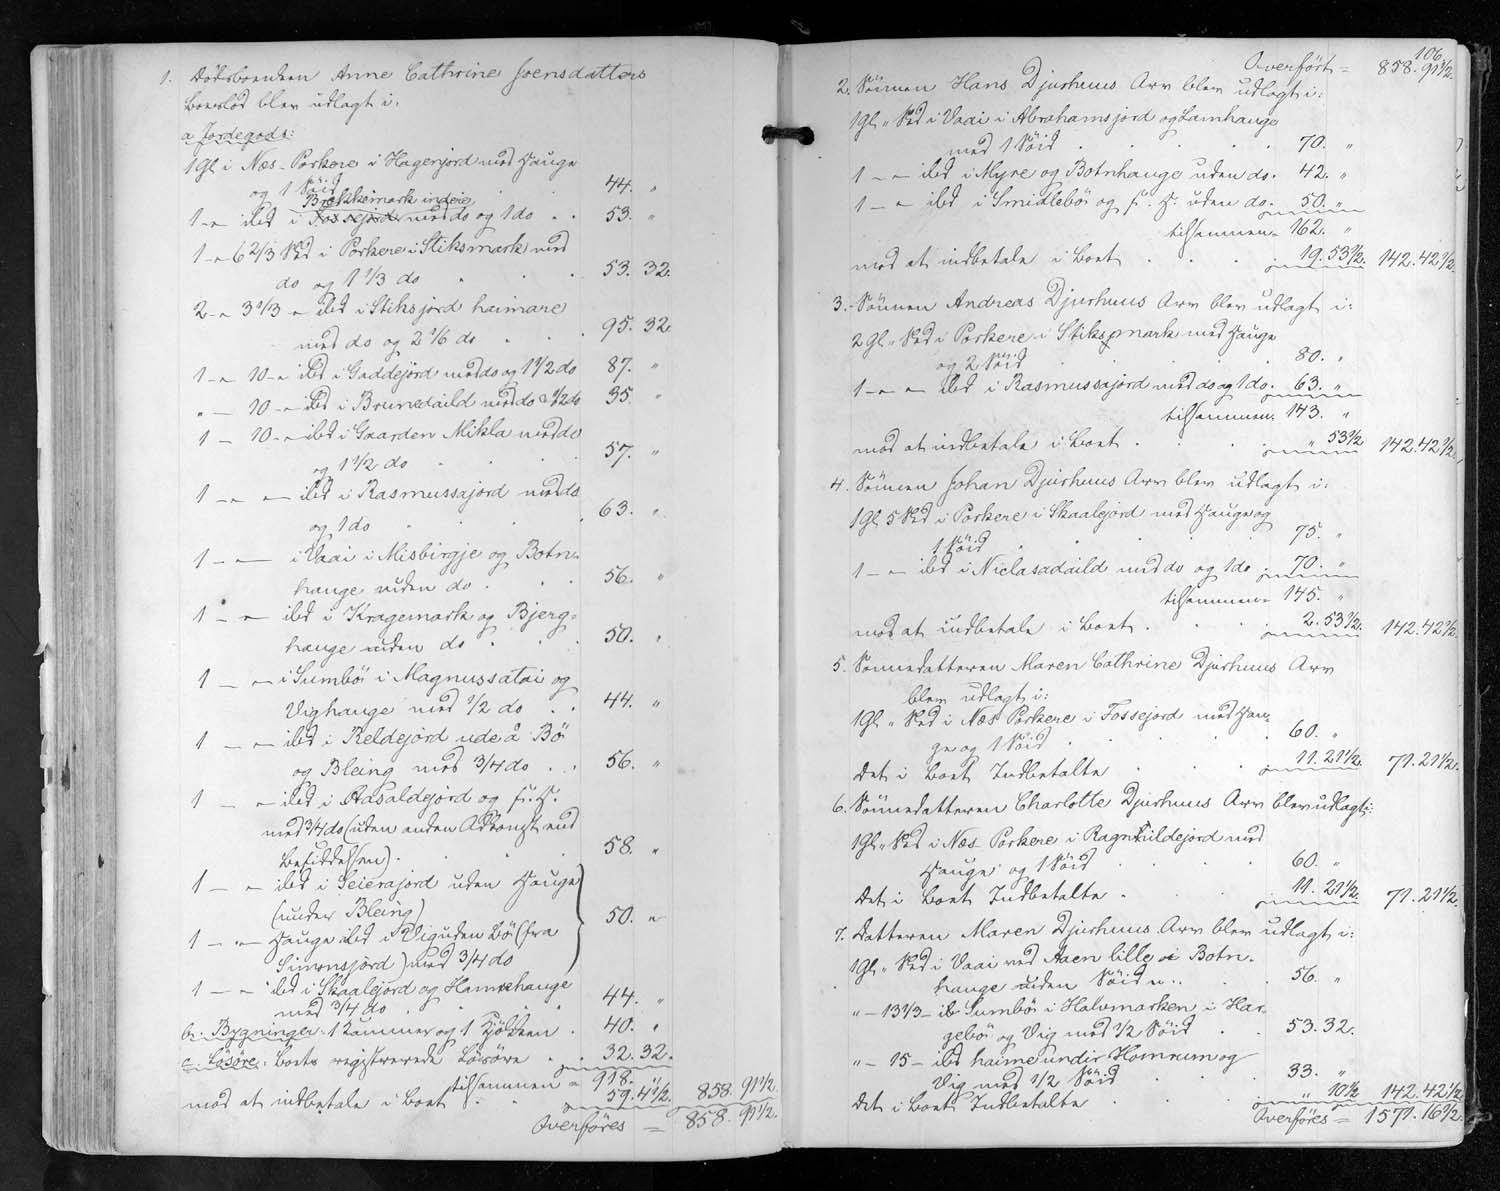 1. Dødsboenken Anne Cathrine Joensdatters
Boeslod blev udlagt i:
a Jordegods:
1 Gl i Næs-Porkere i Hagerjord med Hauge
og 1 Søid . . 44. "
Brekkemark indere
1 - " ibd i Fossejord med do og 1 do . . 53. "
1 - " 6 2/3 Skd i Porkere i Stiksmark med
do og 1 1/3 do . . . 53. 32.
2 - " 3 1/3 - " ibd i Stiksjord heimare
med do og 2 1/6 do . . . 95. 32.
1 - " 10 - " ibd i Gaddejord med do og 1 1/2 do 87. "
" - 10 - " ibd i Brunedaild med do & 1/2 do 35. "
1 - 10 - " ibd i Gaarden Mikla med do
og 1 1/2 do . . . 57. "
1 - " - " ibd i Rasmussajord med do
og 1 do . . . 63. "
1 - " - i Vaai i Misbirgje og Botn-
hauge uden do . . . 56. "
1 - " - ibd i Kragemark og Bjerg-
hauge uden do . . . 50. "
1 - " - i Sumbø i Magnussatoi og
Vighauge med 1/2 do . . 44. "
1 - " - ibd i Keldejord ude å Bø
og Bleing med 3/4 do . . 56. "
1 - " - ibd i Aasaldejord og fr. H.
med 3/4 do (uden anden Adkomst end
Besiddelsen) . . . 58. "
1 - " - ibd i Seierajord uden Hauge
(under Bleing)
50. "
1 - " - Hauge ibd i Vig uden Bø (fra
Simonsjord) med 3/4 do
1 - " - ibd i Skaalejord og Hamrehauge
med 3/4 do . . . 44. "
b. Bygninger: 1 Kammer og 1 Kjökken . 40. "
c. Løsøre: Boets registrerede Løsøre . . 32. 32.
tilsammen = 918.
mod at indbetale i Boet . . 59. 4 1/2. 858. 91 1/2.
Overføres = 858. 91 1/2.
106
Overført = 858. 91 1/2.
2. Sønnen Hans Djurhuus Arv blev udlagt i:
1 Gl " Skd i Vaai i Abrahamsjord og Lamhauge
med 1 Søid . . . 70. "
1 - " - ibd i Myre og Botnhauge uden do. 42. "
1 - " - ibd i Smidlebø og fr. H. uden do. 50. "
tilsammen = 162. "
mod at indbetale i Boet . . . 19. 53 1/2. 142. 42 1/2.
3. Sønnen Andreas Djurhuus Arv blev udlagt i:
2 Gl " Skd i Porkere i Stiksmark med Hauge
og 2 Søid . . . 80. "
1 - " - " ibd i Rasmussajord med do og 1 do. 63. "
tilsammen = 143. "
mod at indbetale i Boet . . . " 53 1/2 142. 42 1/2.
4. Sønnen Johan Djurhuus Arv blev udlagt i:
1 Gl 5 Skd i Porkere i Skaalejord med Hauge og
1 Søid . . . 75. "
1 - " - ibd i Niclasadaild med do og 1 do . 70. "
tilsammen = 145. "
mod at indbetale i Boet . . . 2. 53 1/2. 142. 42 1/2.
5. Sønnedatteren Maren Cathrine Djurhuus Arv
blev udlagt i:
1 Gl " Skd i Næs Porkere i Fossejord med Hau-
ge og 1 Søid . . . 60. "
Det i Boet Indbetalte . . . 11. 21 1/2. 71. 21 1/2.
6. Sønnedatteren Charlotte Djurhuus Arv blev udlagt i:
1 Gl " Skd i Næs Porkere i Ragnhildejord med
Hauge og 1 Søid . . . 60. "
Det i Boet Indbetalte . . . 11. 21 1/2. 71. 21 1/2.
7. Datteren Maren Djurhuus Arv blev udlagt i:
1 Gl " Skd i Vaai ved Aaen lille og Botn-
hauge uden Søid . . 56. "
" - 13 1/3 - ib Sumbø i Halvmarken i Har-
gebø og Vig med 1/2 Søid . 53. 32.
" - 15 - ibd haime undir Homrum og
Vig med 1/2 Søid . . 33. "
Det i Boet Indbetalte . . . " 10 1/2 142. 42 1/2
Overføres = 1571. 16 1/2.